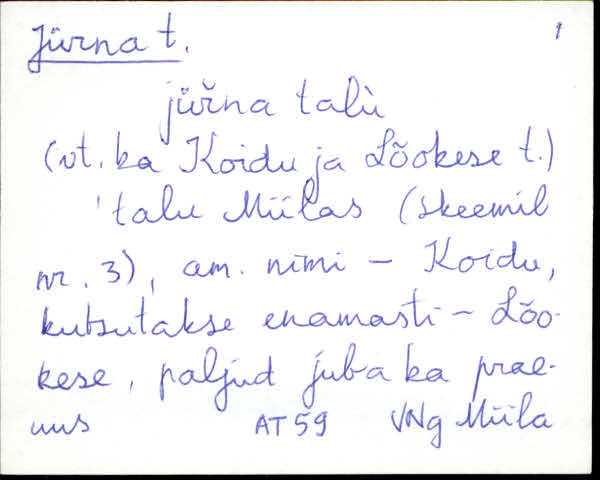 Jürna t. 1
jür̆na talù
(vt. ka Koidu ja Lõokese t.)
'talu Miilas (skeemil
nr. 3), am. nimi – Koidu,
kutsutakse enamasti – Lõo-
kese, paljud juba ka prae-
uus AT 59 VNg Miila